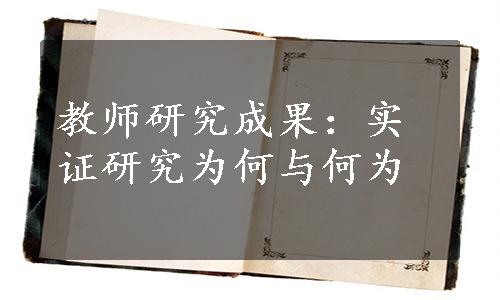 教师研究成果：实
证研究为何与何为